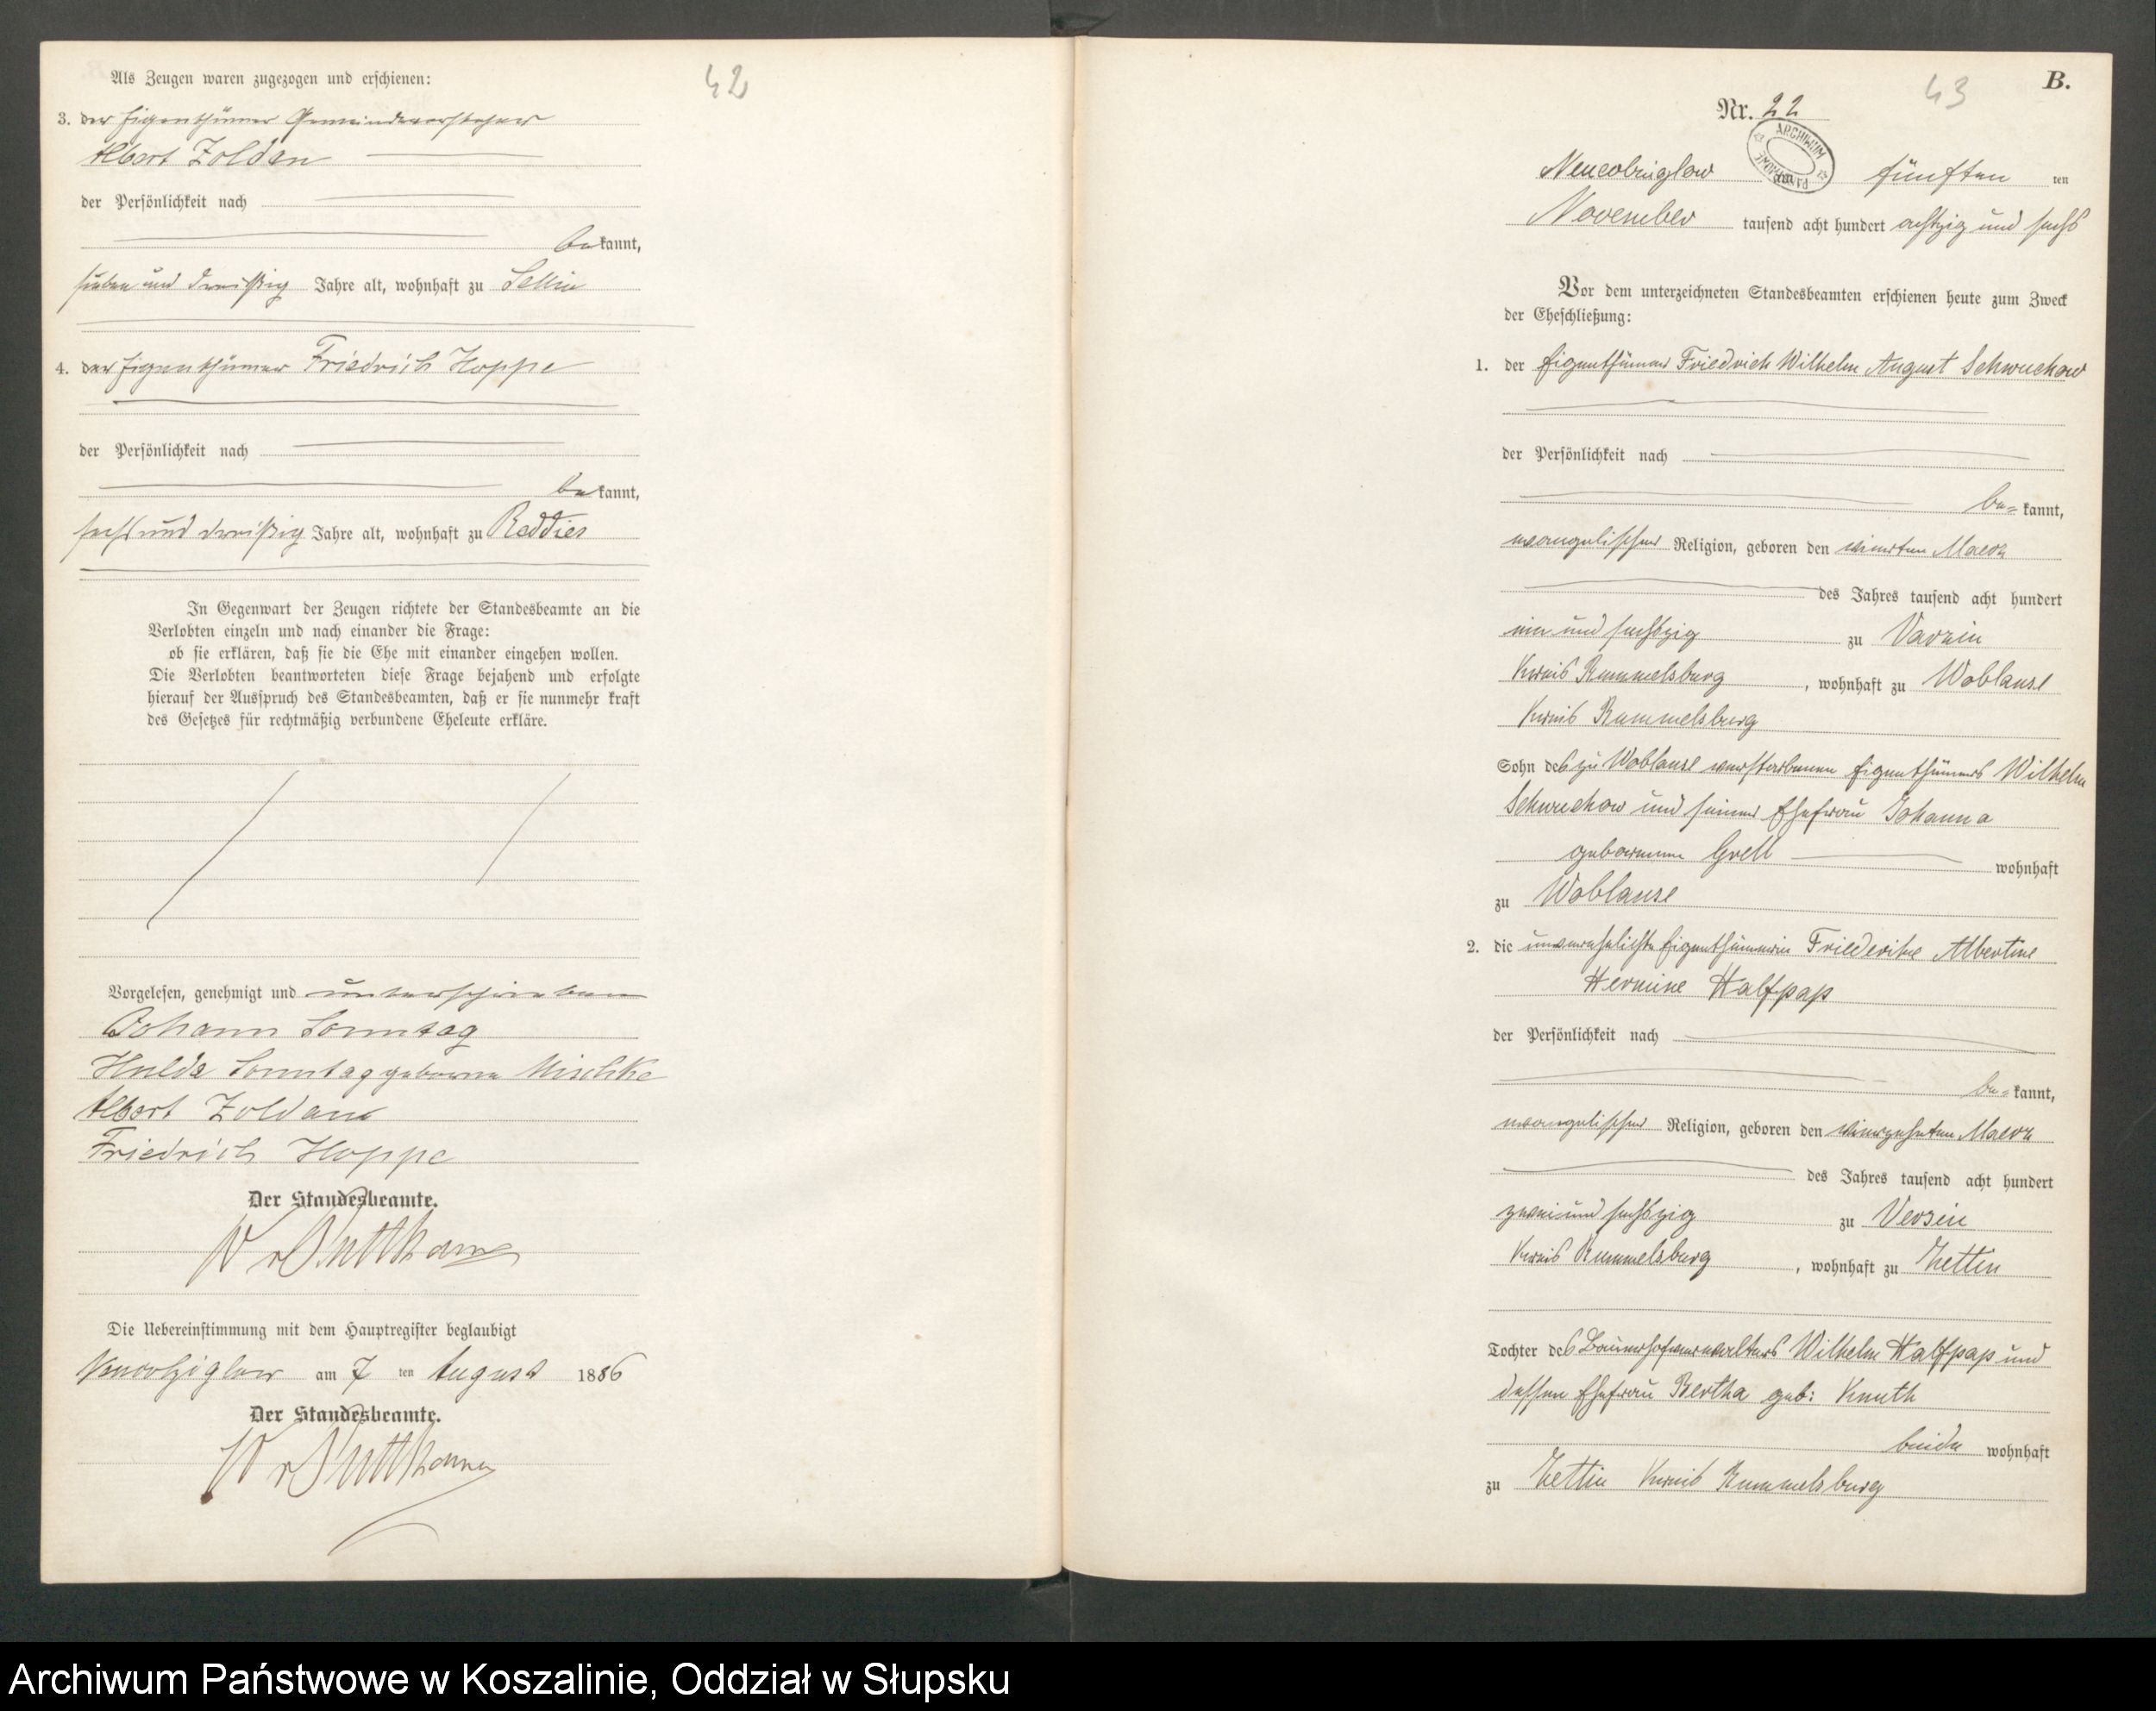 Als Zeugen waren zugezogen und erschienen:
42
3. der Eigenthümer Gemeindevorsteher
Albert Zoldan
der Persönlichkeit nach
bekannt,
sieben und dreißig Jahre alt, wohnhaft zu Sellin
4. der Eigenthümer Friedrich Hoppe
der Persönlichkeit nach
bekannt,
sechs und dreißig Jahre alt, wohnhaft zu Reddies
In Gegenwart der Zeugen richtete der Standesbeamte an die
Verlobten einzeln und nach einander die Frage:
ob sie erklären, daß sie die Ehe mit einander eingehen wollen.
Die Verlobten beantworteten diese Frage bejahend und erfolgte
hierauf der Ausspruch des Standesbeamten, daß er sie nunmehr kraft
des Gesetzes für rechtmäßig verbundene Eheleute erkläre.
Vorgelesen, genehmigt und unterschrieben
Johann Sonntag
Hulda Sonntag geborene Mischke
Albert Zoldan
Friedrich Hoppe
Der Standesbeamte.
v Puttkamer
Die Uebereinstimmung mit dem Hauptregister beglaubigt
am 7 ten August 1886
Der Standesbeamte.
v Puttkamer
43
B.
Nr. 22
ARCHIWUM PAŃSTWOWE
Neucolziglow am fünften ten
November tausend acht hundert achtzig und sechs
Vor dem unterzeichneten Standesbeamten erschienen heute zum Zweck
der Eheschließung:
1. der Eigenthümer Friedrich Wilhelm August Schwuchow
der Persönlichkeit nach
be= kannt,
evangelischer Religion, geboren den vierten Maerz
des Jahres tausend acht hundert
ein und sechszig zu Varzin
Kreis Rummelsburg, wohnhaft zu Woblanse
Kreis Rummelsburg
Sohn des zu Woblanse verstorbenen Eigenthümers Wilhelm
Schwuchow und seiner Ehefrau Johanna
geborenen Grell wohnhaft
zu Woblanse
2. die unverehelichte Eigenthümerin Friederike Albertine
Hermine Halfpap
der Persönlichkeit nach
be= kannt,
evangelischer Religion, geboren den vierzehnten Maerz
des Jahres tausend acht hundert
zwei und sechszig zu Versin
Kreis Rummelsburg, wohnhaft zu Zettin
Tochter des Bauerhofverwalters Wilhelm Halfpap und
dessen Ehefrau Bertha geb: Knuth
beide wohnhaft
zu Zettin Kreis Rummelsburg
Archiwum Państwowe w Koszalinie, Oddział w Słupsku